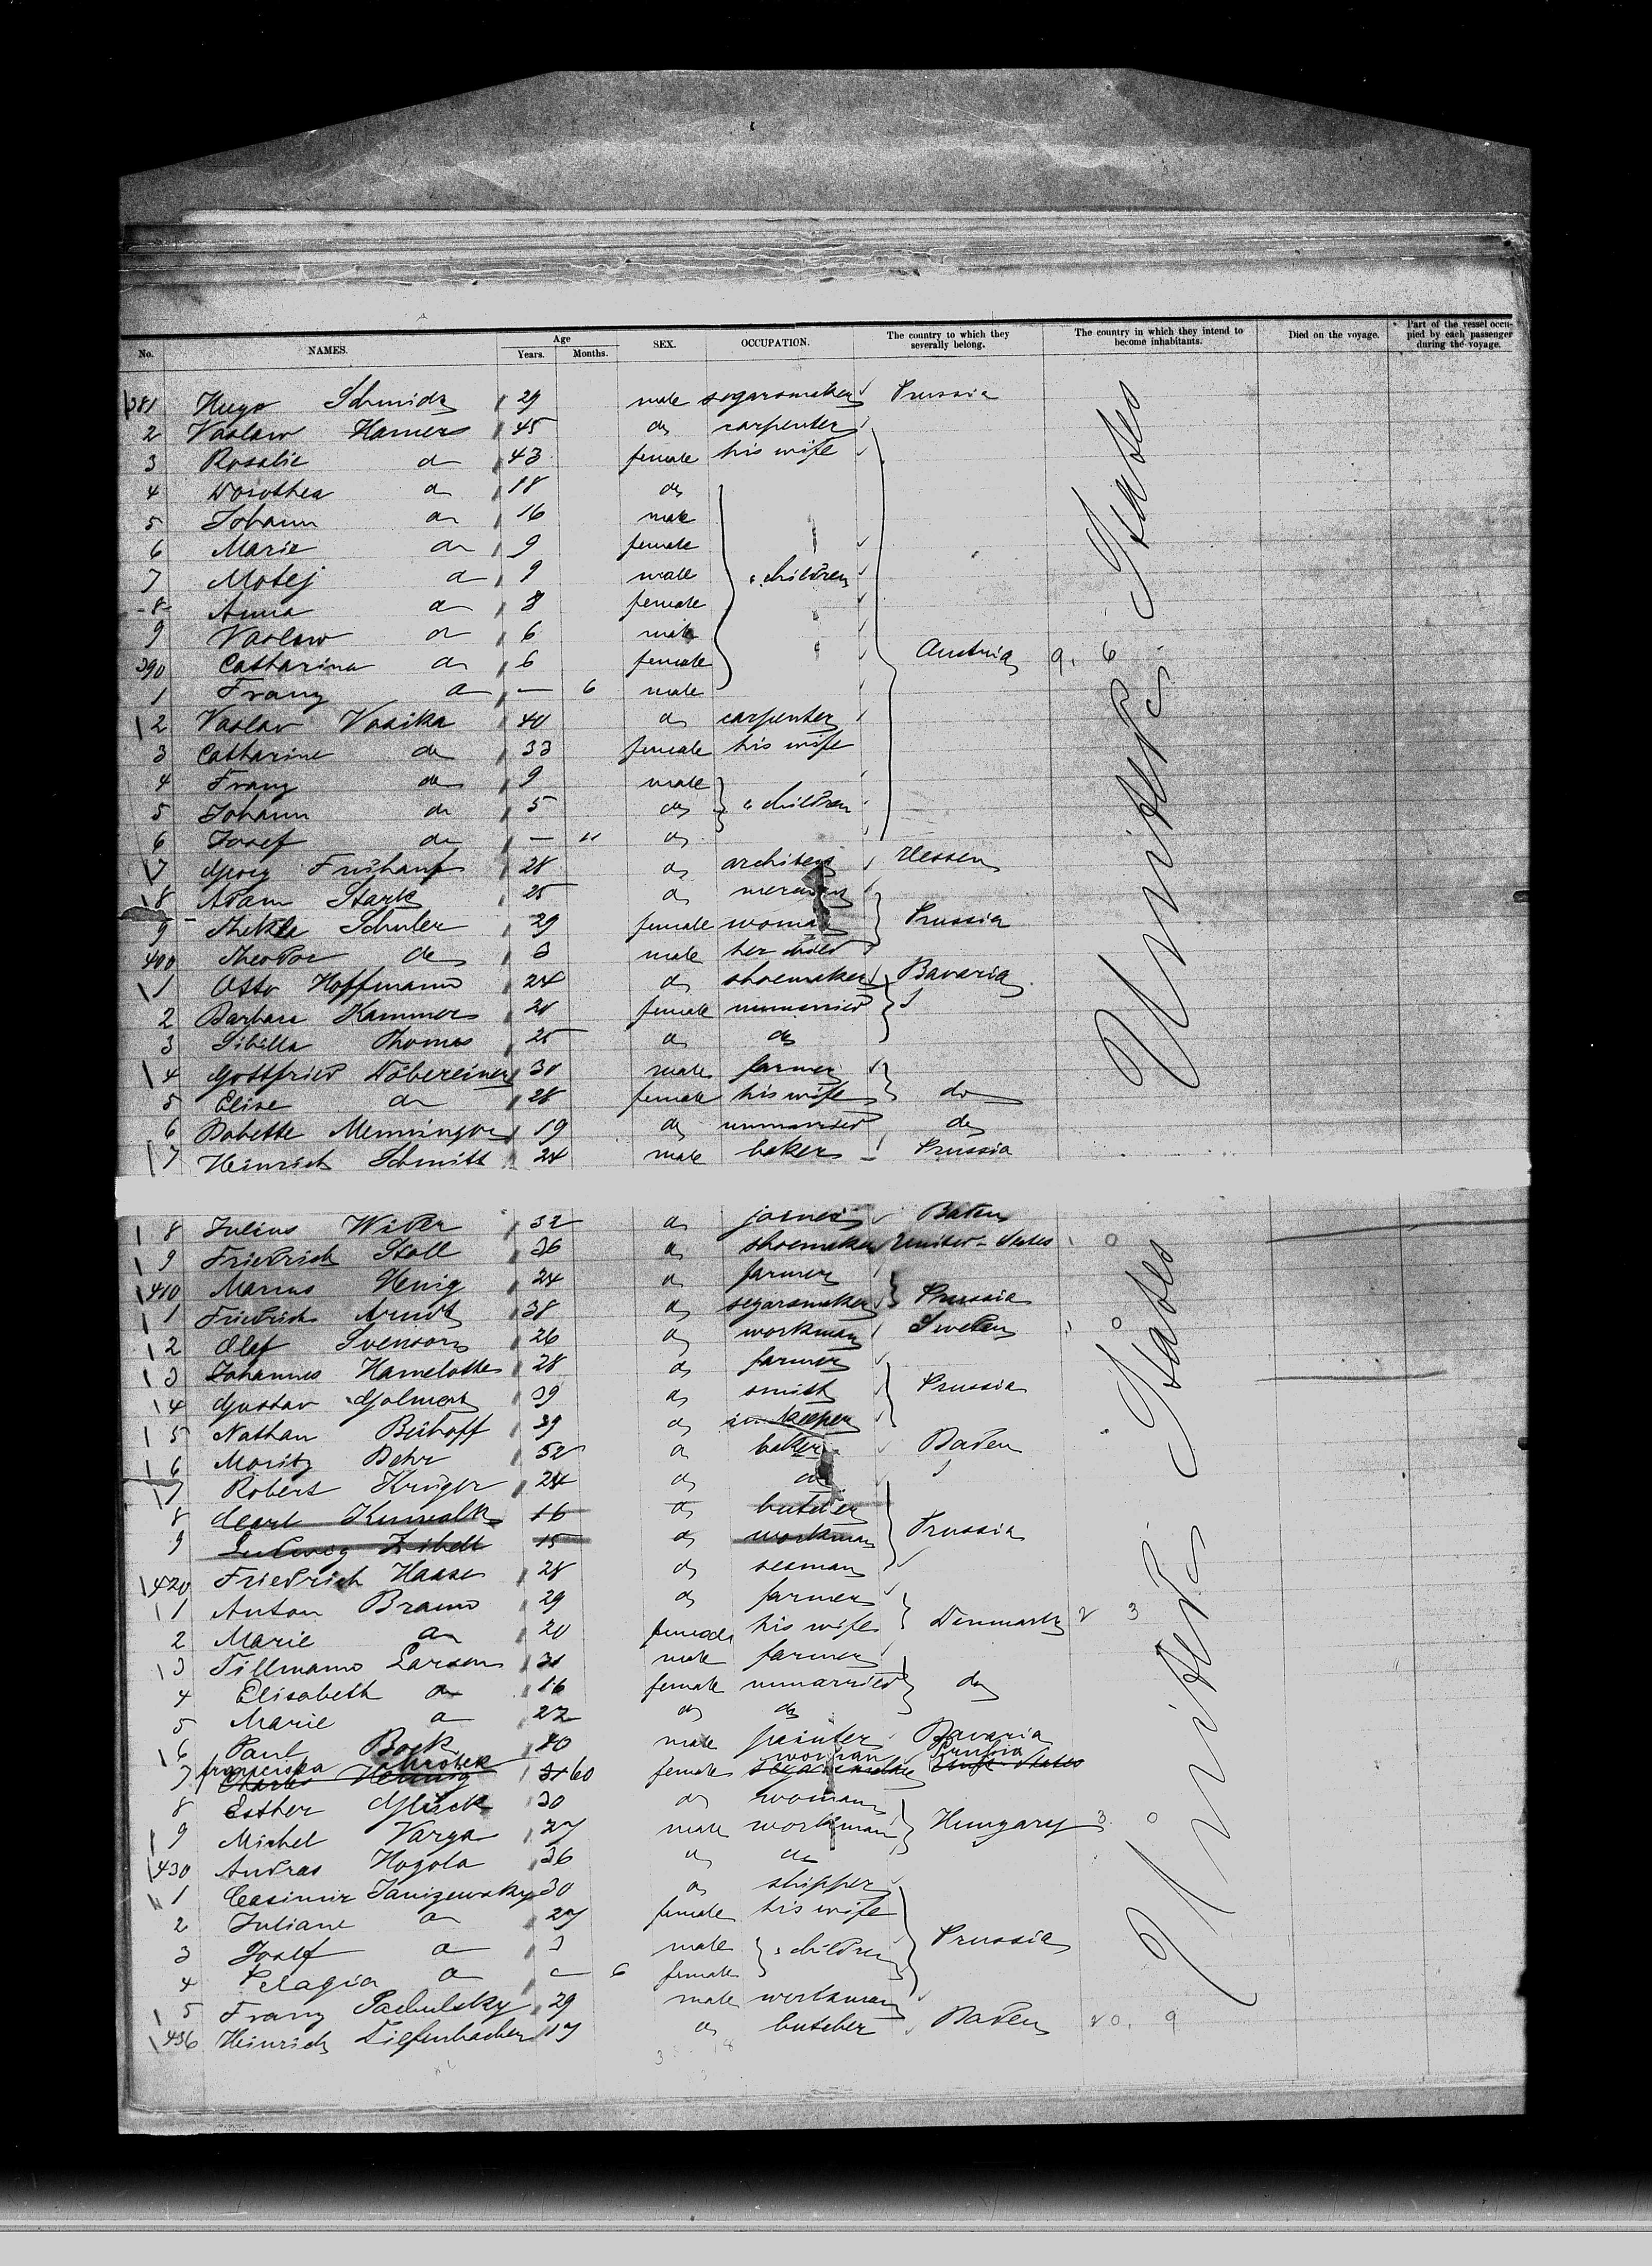 No. NAMES. Age Years. Months. SEX. OCCUPATION. The country to which they severally belong. The country in which they intend to become inhabitants. Died on the voyage. Part of the vessel occupied by each passenger during the voyage.
381 Hugo Schmidt 29 male segarsmaker Prussia
2 Vaslaw Hamers 45 do carpenter
3 Rosalie do 43 female his wife
4 Dorothea do 18 do
5 Johann do 16 male
6 Marie do 9 female
7 Matej do 9 male children
8 Anna do 8 female
9 Vaslaw do 6 male
390 Catharina do 6 female Austria 9. 6
1 Franz do — 6 male
2 Vaslav Vosika 40 do carpenter
3 Catharine do 33 female his wife
4 Franz do 9 male
5 Johann do 5 do children
6 Josef do — 11 do
7 Georg Frühauf 28 do architect Hessen
8 Adam Stark 25 do
9 Thekla Schuler 29 female woman Prussia
400 Theodor do 3 male her child
1 Otto Hoffmann 24 do shoemaker Bavaria
2 Barbara Kammer 20 female unmarried
3 Sibilla Thomas 25 do do
4 Gottfried Döbereiner 30 male farmer
5 Elise do 28 female his wife do
6 Babette Menninger 19 do unmarried do
7 Heinrich Schmitt 24 male baker Prussia
United States
8 Julius Wider 32 do joiner Baden
9 Friedrich Stoll 36 do shoemaker United-States 1 0
410 Marcus Henig 24 do farmer
1 Friedrich Arndt 38 do segarsmaker Prussia
2 Olef Svenson 26 do workman Sweden 1 0
3 Johannes Hamelotte 28 do farmer
4 Gustav 39 do smith Prussia
5 Nathan Bishoff 39 do innkeeper
6 Moritz Behr 52 do baker Baden
7 Robert Krüger 24 do do
8 Carl 16 do butcher
9 Ludwig 15 do workman Prussia
420 Friedrich Haase 28 do seaman
1 Anton Braun 29 do farmer
2 Marie do 20 female his wife Denmark 2 3
3 Tillmann Larsen 31 male farmer
4 Elisabeth do 16 female unmarried do
5 Marie do 22 do do
6 Paul Bock 40 male painter Bavaria
7 Franciska 60 female woman Prussia
8 Esther Glück 30 do woman
9 Michel Varga 27 male workman Hungary 3. 0
430 Andras Hogola 36 do do
1 Casimir Janizewsky 30 do shipper
2 Juliane do 27 female his wife
3 Josef do 3 male children Prussia
4 Pelagia do — 6 female
5 Franz Pachulsky 29 male workman
436 Heinrich Diefenbacher 17 do butcher Baden 20. 9
United States